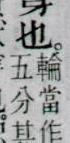 身也。輪當作
五分其